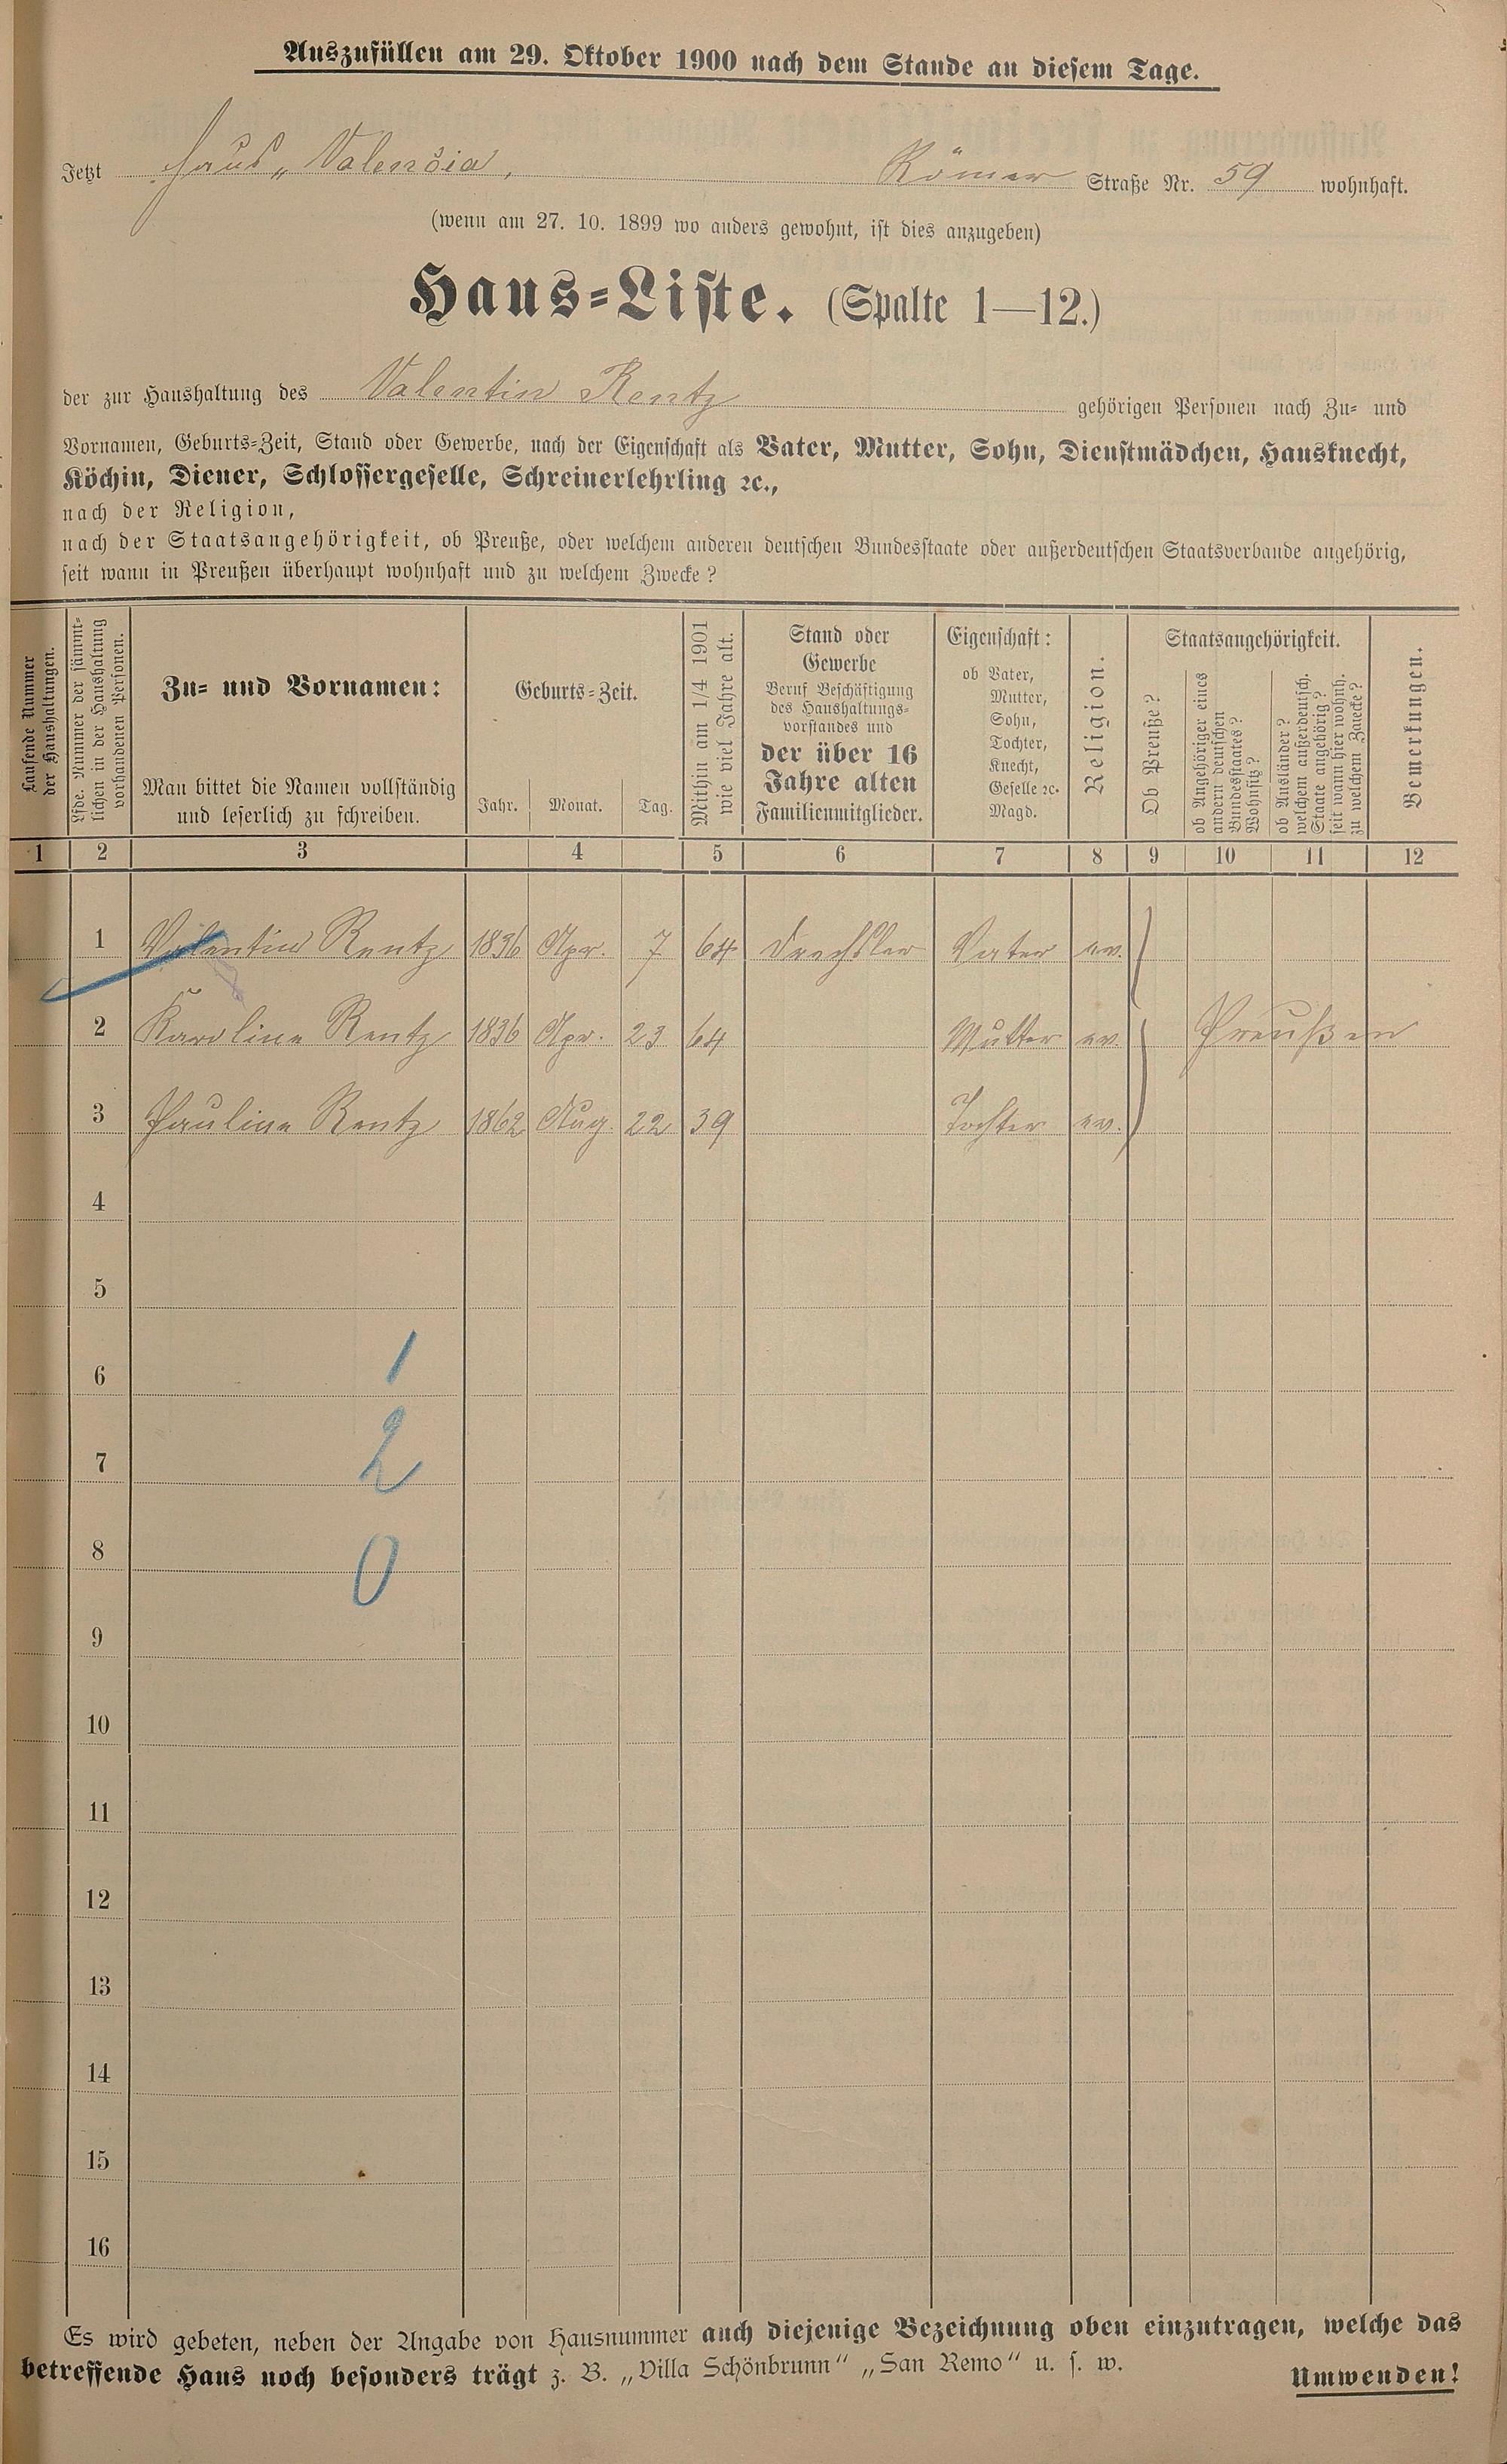 Auszufüllen am 29. Oktober 1900 nach dem Stande an diesem Tage.
Jetzt Haus „Valencia, Römer Straße Nr. 59 wohnhaft.
(wenn am 27. 10. 1899 wo anders gewohnt, ist dies anzugeben)
Haus=Liste. (Spalte 1—12.)
der zur Haushaltung des Valentin Rentz gehörigen Personen nach Zu= und
Vornamen, Geburts=Zeit, Stand oder Gewerbe, nach der Eigenschaft als Vater, Mutter, Sohn, Dienstmädchen, Hausknecht,
Köchin, Diener, Schlossergeselle, Schreinerlehrling ꝛc.,
nach der Religion,
nach der Staatsangehörigkeit, ob Preuße, oder welchem anderen deutschen Bundesstaate oder außerdeutschen Staatsverbande angehörig,
seit wann in Preußen überhaupt wohnhaft und zu welchem Zwecke?
Laufende Nummer
der Haushaltungen.
Lfde. Nummer der sämmt=
lichen in der Haushaltung
vorhandenen Personen.
Zu= und Vornamen:
Man bittet die Namen vollständig
und leserlich zu schreiben.
Geburts=Zeit.
Jahr. Monat. Tag.
Mithin am 1/4 1901
wie viel Jahre alt.
Stand oder
Gewerbe
Beruf Beschäftigung
des Haushaltungs=
vorstandes und
der über 16
Jahre alten
Familienmitglieder.
Eigenschaft:
ob Vater,
Mutter,
Sohn,
Tochter,
Knecht,
Geselle ꝛc.
Magd.
Religion.
Staatsangehörigkeit.
Ob Preuße?
ob Angehöriger eines
andern deutschen
Bundesstaates?
Wohnsitz?
ob Ausländer?
welchem außerdeutsch.
Staate angehörig?
seit wann hier wohnh.
zu welchem Zwecke?
Bemerkungen.
1 2 3 4 5 6 7 8 9 10 11 12
1 Valentin Rentz 1836 Apr. 7 64 Drechsler Vater ev.
2 Karoline Rentz 1836 Apr. 23 64 Mutter ev. Preußen
3 Pauline Rentz 1862 Aug. 22 39 Tochter ev.
4
5
6 1
7 2
8 0
9
10
11
12
13
14
15
16
Es wird gebeten, neben der Angabe von Hausnummer auch diejenige Bezeichnung oben einzutragen, welche das
betreffende Haus noch besonders trägt z. B. „Villa Schönbrunn“ „San Remo“ u. s. w.
Umwenden!